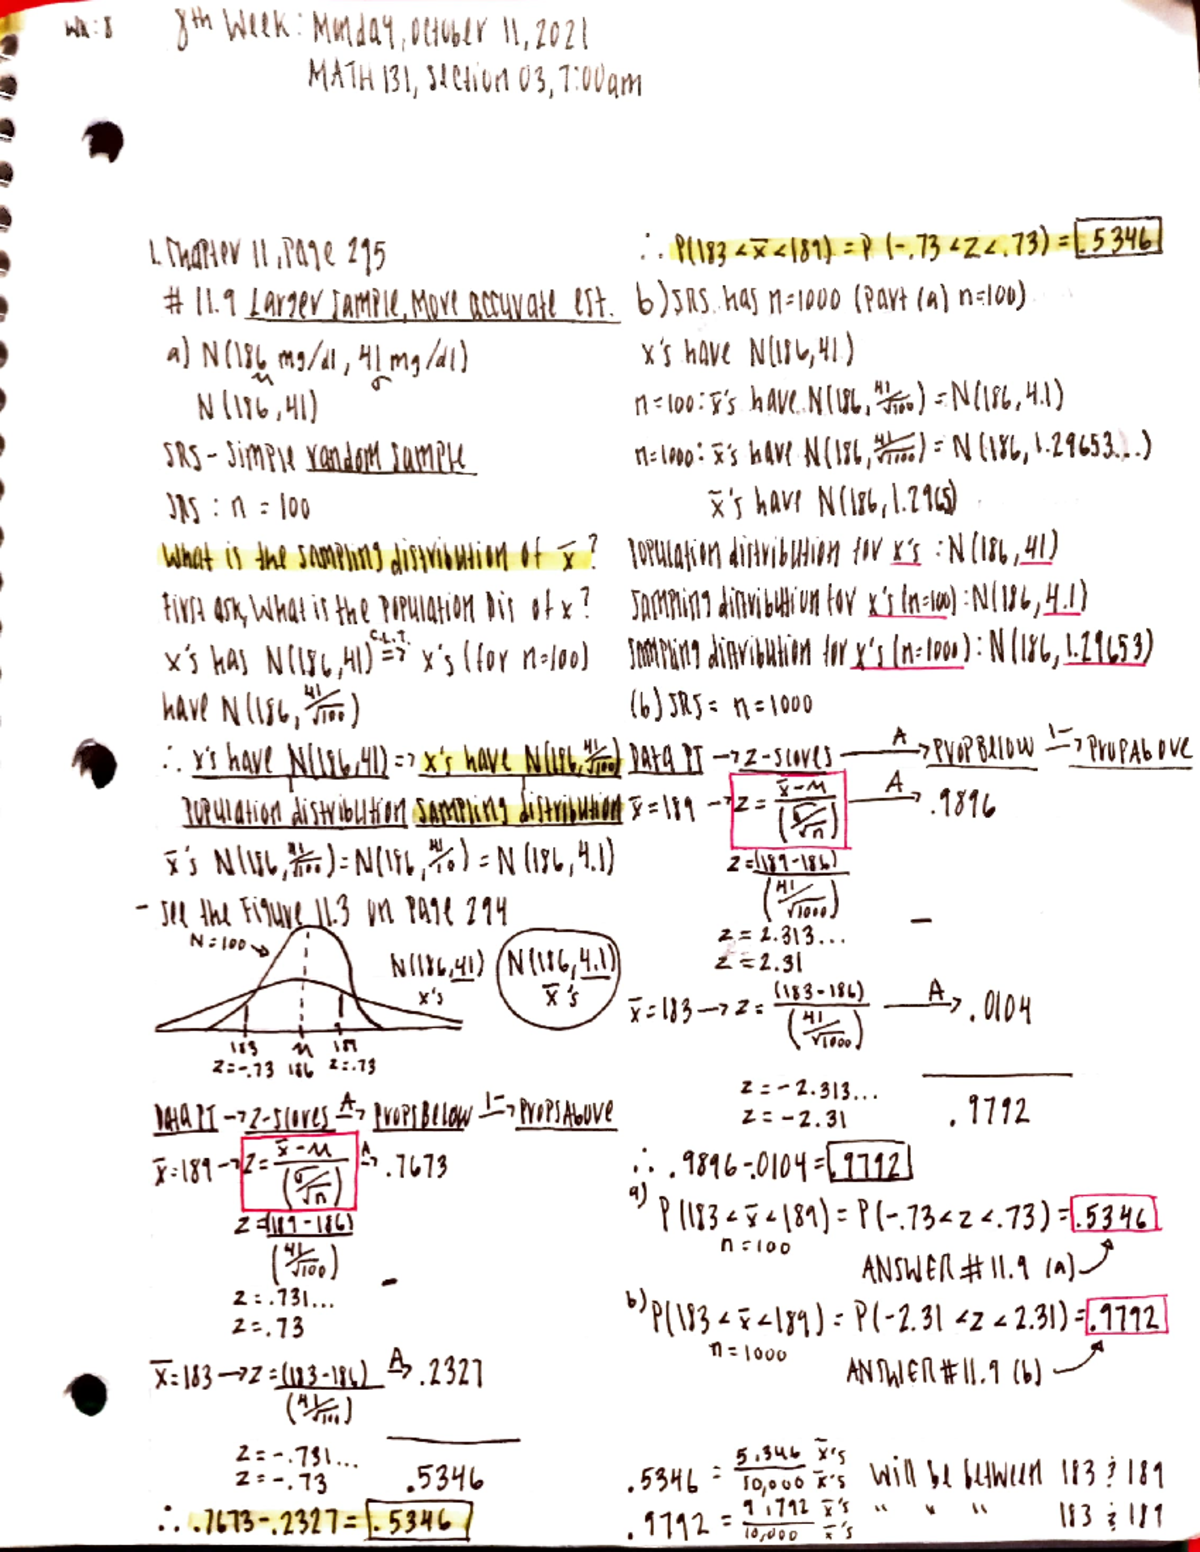 WK: 8
8th Week: Monday, October 11, 2021
MATH 131, Section 03, 7:00am
1. Chapter 11, Page 295
# 11.9 Larger sample, More accurate est.
a) N(186 mg/dl, 41 mg/dl)
μ σ
N(186, 41)
SRS - Simple random sample
SRS : n = 100
What is the sampling distribution of x̄ ?
First ask, What is the Population Dis of x?
x's has N(186, 41) C.L.T. => x's (for n=100)
have N(186, 41/√100)
∴ x's have N(186, 41) => x's have N(186, 41/√100)
Population distribution sampling distribution
x̄'s N(186, 41/√100) = N(186, 41/10) = N(186, 4.1)
- See the Figure 11.3 on Page 294
N = 100
N(186, 41)
x's
N(186, 4.1)
x̄'s
183 μ 189
z=-.73 186 z=.73
Data PT → z-scores A→ Props Below 1-→ Props Above
x̄=189 → z = x̄-μ/(σ/√n) A→ .7673
z = (189-186)/(41/√100)
-
z = .731...
z = .73
x̄=183 → z = (183-186)/(41/√100) A→ .2327
z = -.731...
z = -.73
.5346
∴ .7673-.2327 = .5346
∴ P(183 < x̄ < 189) = P(-.73 < z < .73) = .5346
b) SRS has n=1000 (part (a) n=100)
x's have N(186, 41)
n=100: x̄'s have N(186, 41/√100) = N(186, 4.1)
n=1000: x̄'s have N(186, 41/√1000) = N(186, 1.29653...)
x̄'s have N(186, 1.2965)
Population distribution for x's : N(186, 41)
Sampling distribution for x's (n=100) : N(186, 4.1)
Sampling distribution for x's (n=1000) : N(186, 1.29653)
(b) SRS = n = 1000
Data PT → z-scores A→ Prop Below 1-→ Prop Above
x̄=189 → z = x̄-μ/(σ/√n) A→ .9896
z = (189-186)/(41/√1000)
-
z = 2.313...
z = 2.31
x̄=183 → z = (183-186)/(41/√1000) A→ .0104
z = -2.313...
z = -2.31
.9792
∴ .9896-.0104 = .9792
a) P(183 < x̄ < 189) = P(-.73 < z < .73) = .5346
n=100
ANSWER # 11.9 (a)
b) P(183 < x̄ < 189) = P(-2.31 < z < 2.31) = .9792
n=1000
ANSWER # 11.9 (b)
.5346 = 5,346 x̄'s/10,000 x̄'s will be between 183 & 189
.9792 = 9,792 x̄'s/10,000 x̄'s " " " 183 & 189